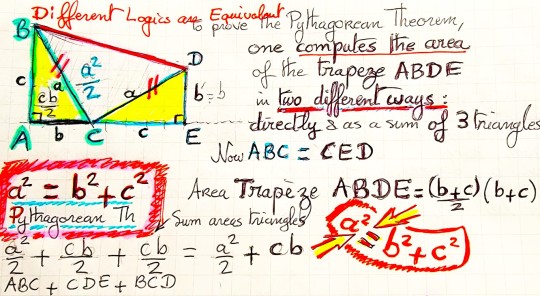 Different Logics are Equivalent
to prove the Pythagorean Theorem,
one computes the area
of the trapeze ABDE
in two different ways:
directly & as a sum of 3 triangles
Now ABC = CED
B
D
c
a
a²/2
a
cb/2
b = b
A
b
C
c
E
a² = b² + c²
Pythagorean Th
Area Trapèze ABDE = (b+c)/2 (b+c)
Sum areas triangles
a²/2 + cb/2 + cb/2 = a²/2 + cb
a² = b² + c²
ABC + CDE + BCD